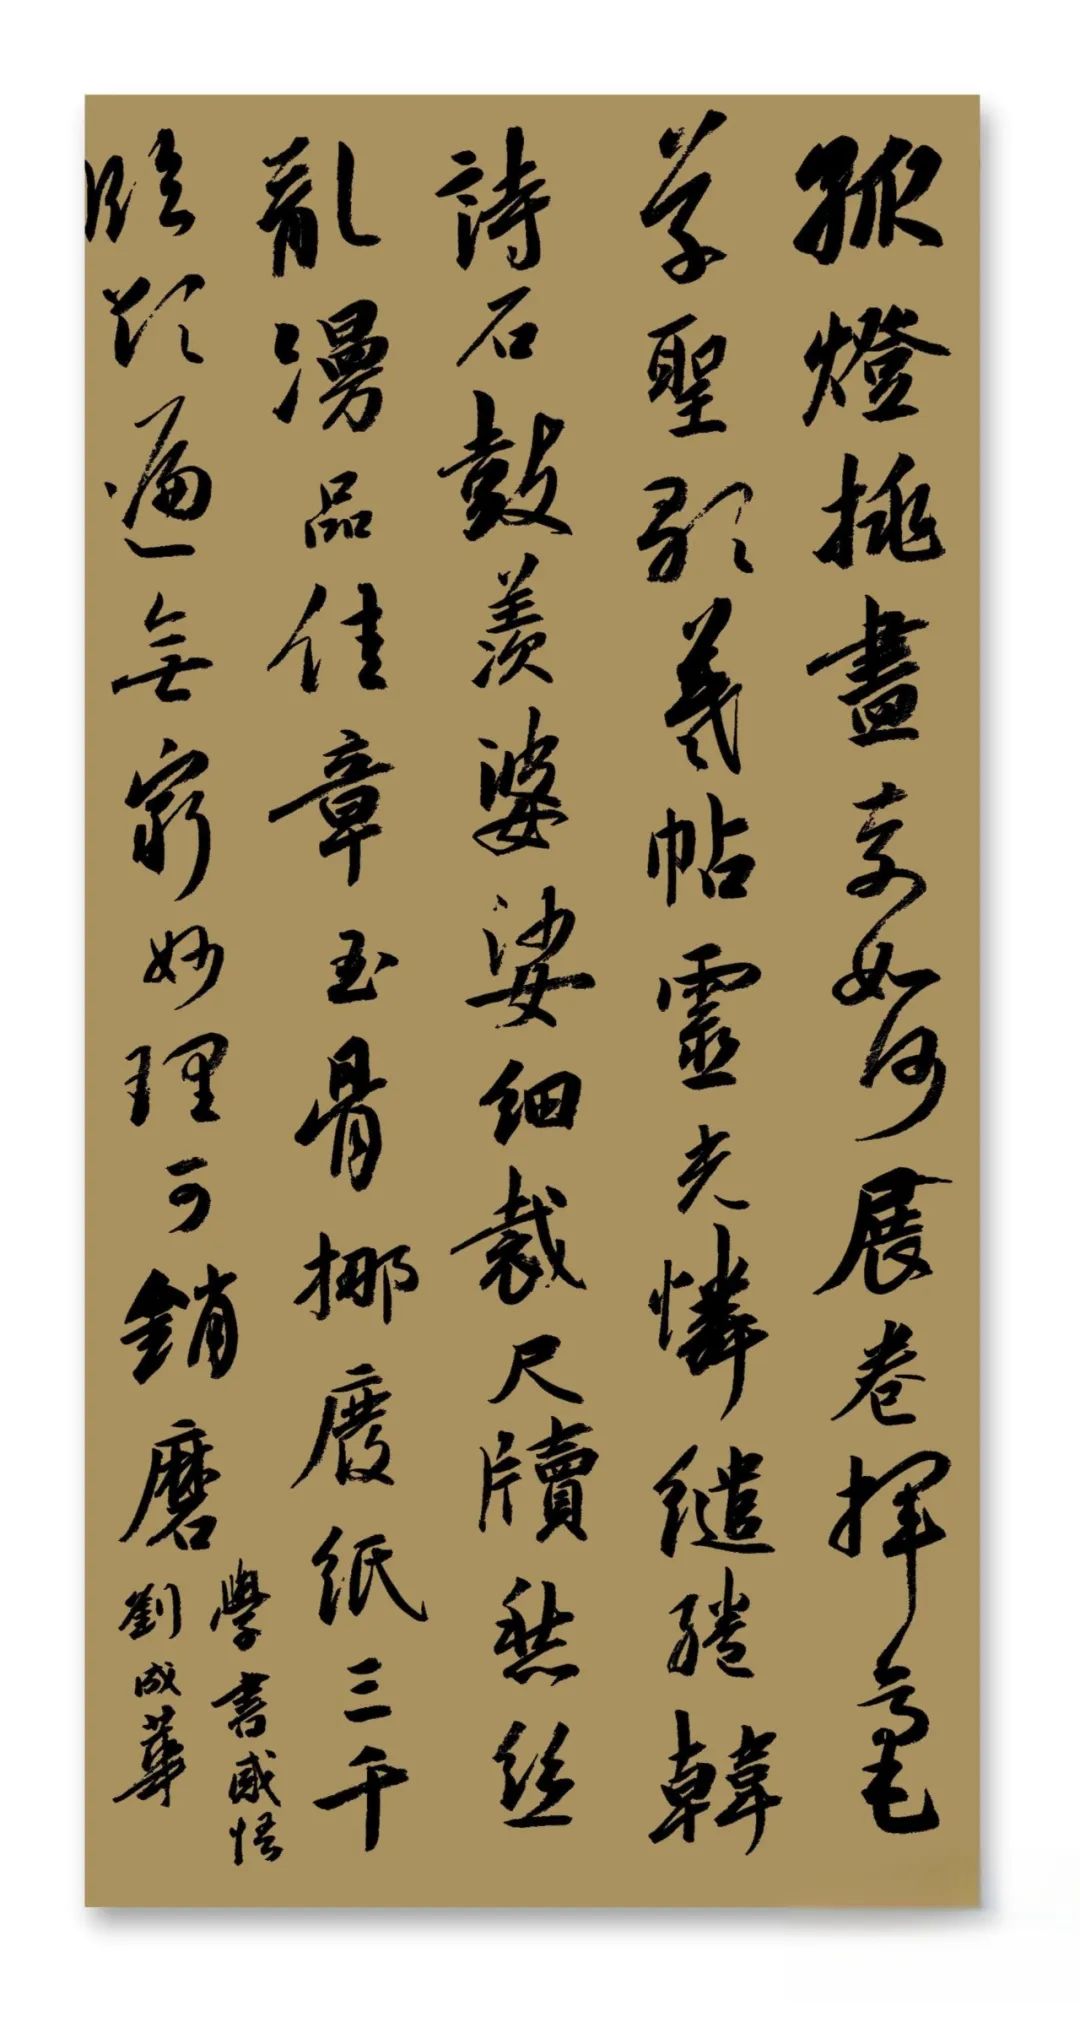 孤燈挑盡夜如何展卷揮毫
草聖歌羲帖靈光憐繾綣韓
詩石鼓羨婆娑細裁尺牘愁絲
亂漫品佳章玉骨挪廢紙三千
臨欲遍無窮妙理可銷磨
學書感悟
劉成華